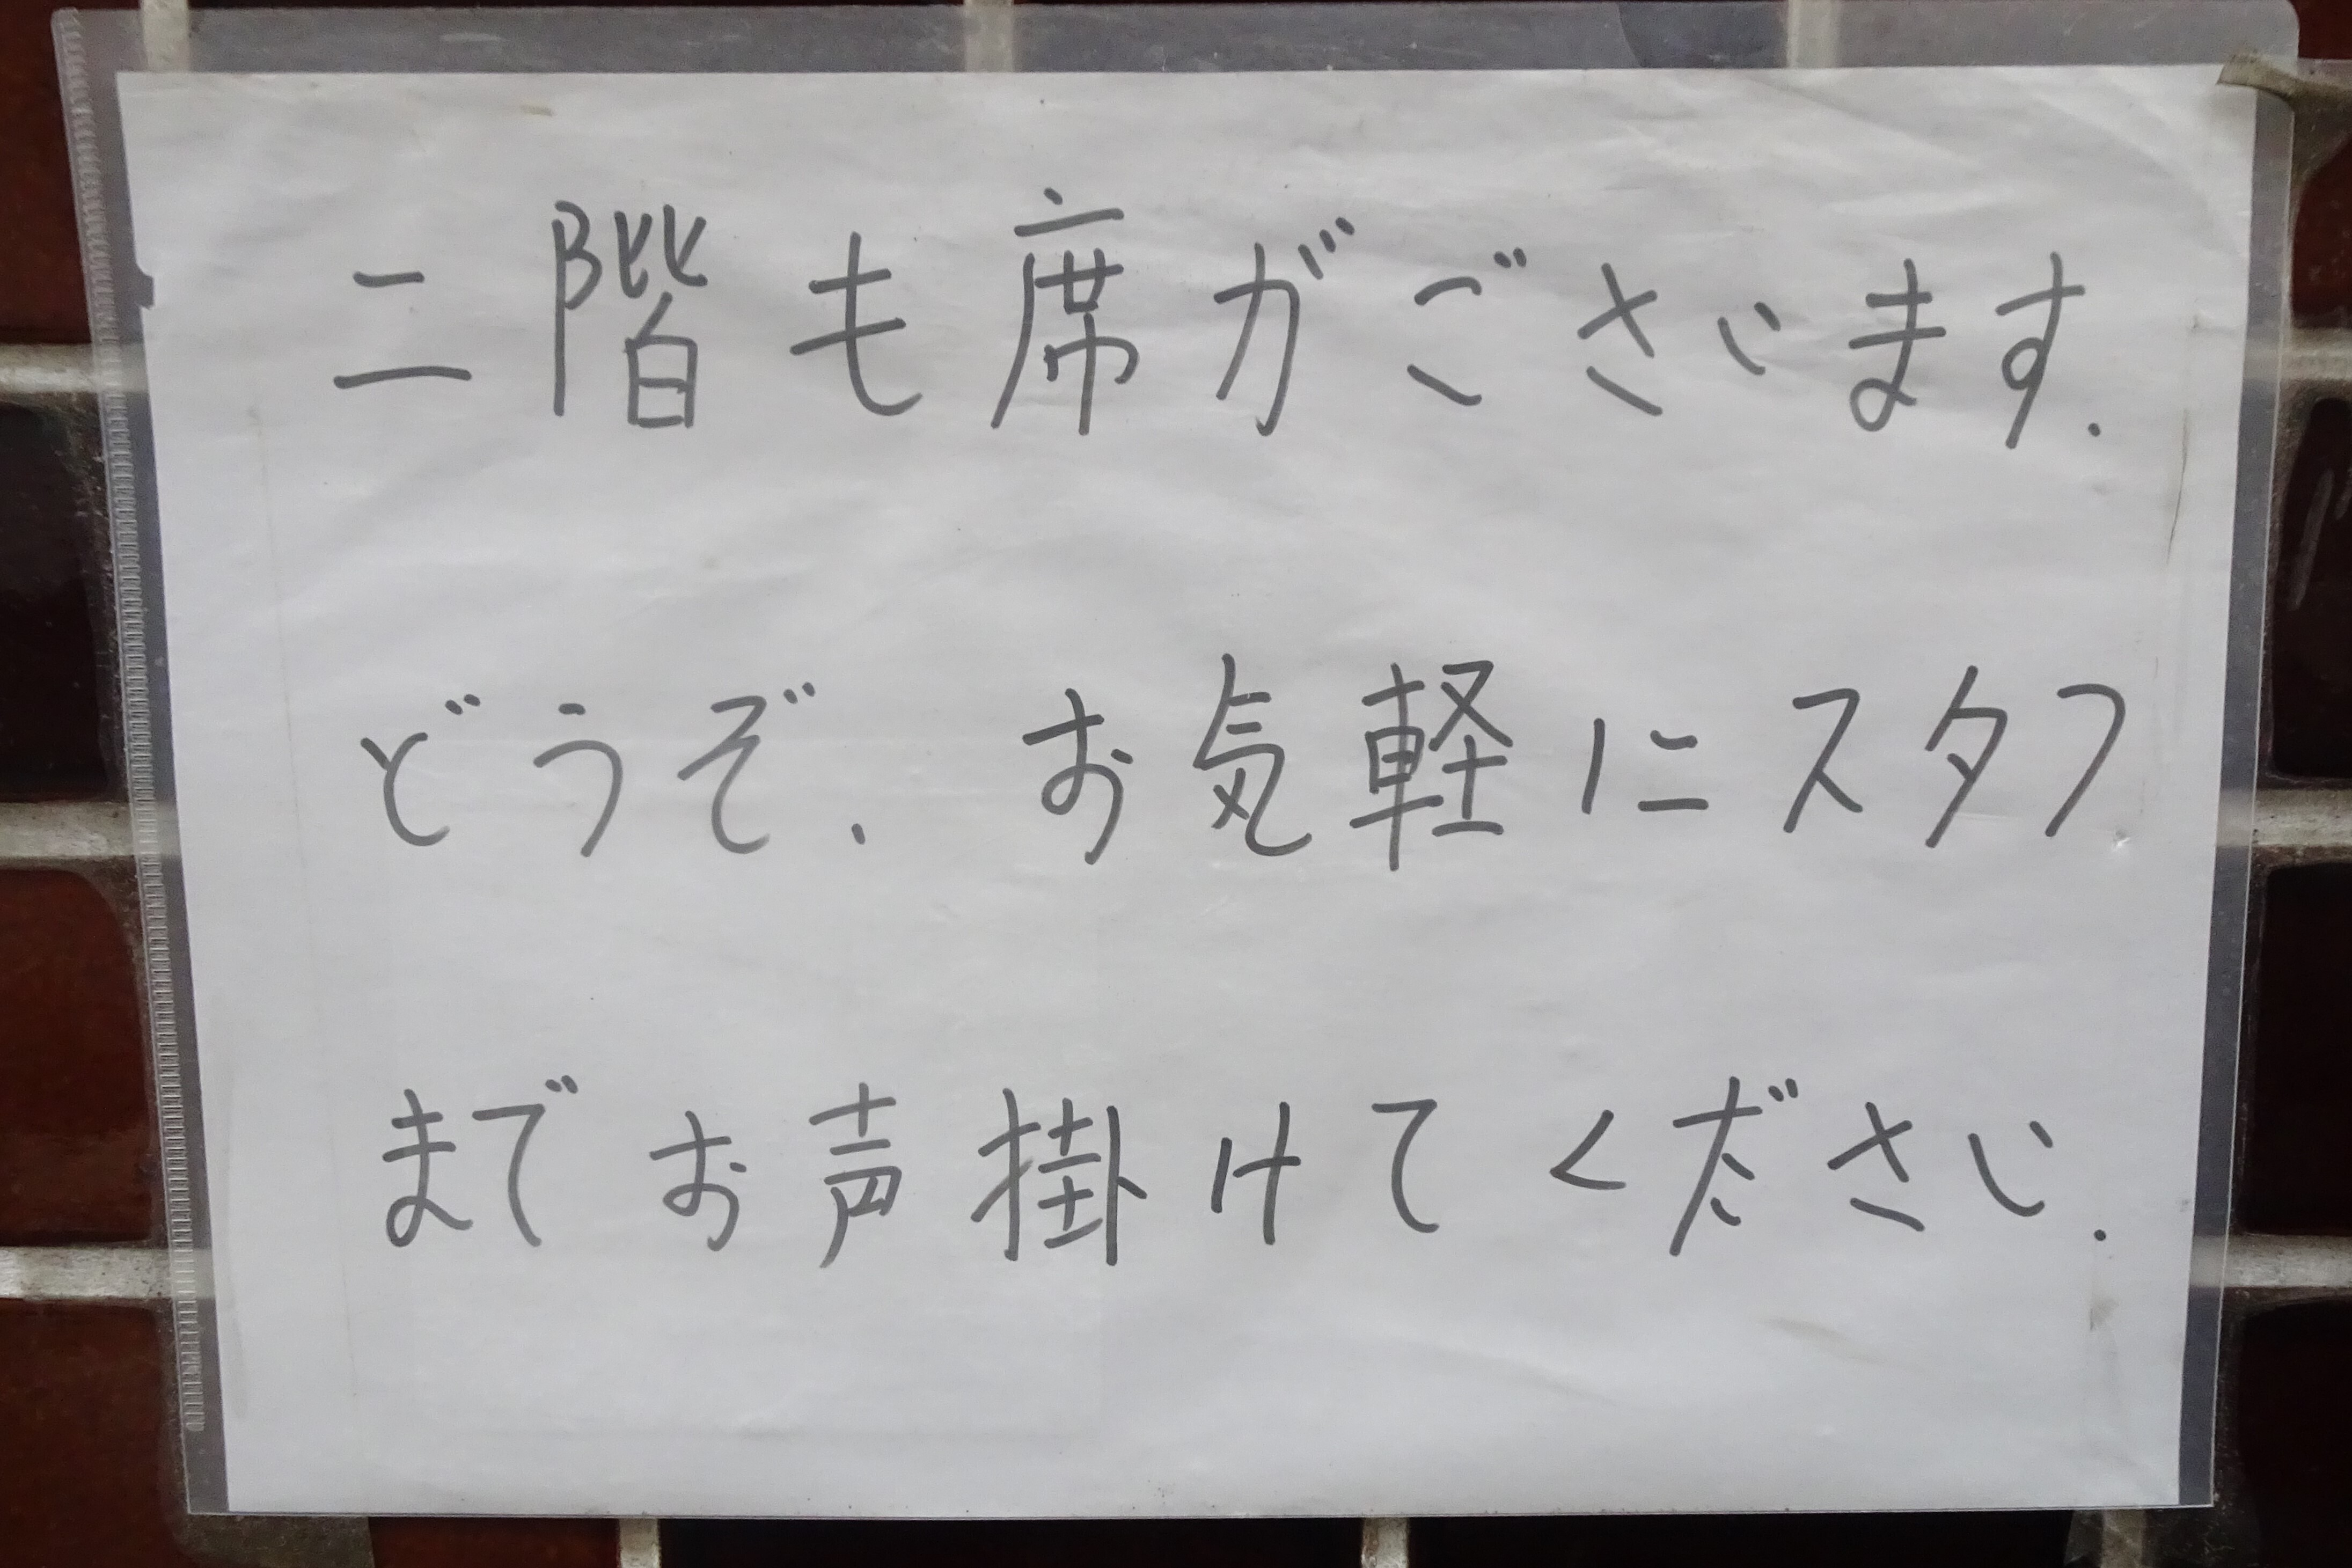 二階も席がごさいます.
どうぞ. お気軽にスタフ
までお声掛けてください.